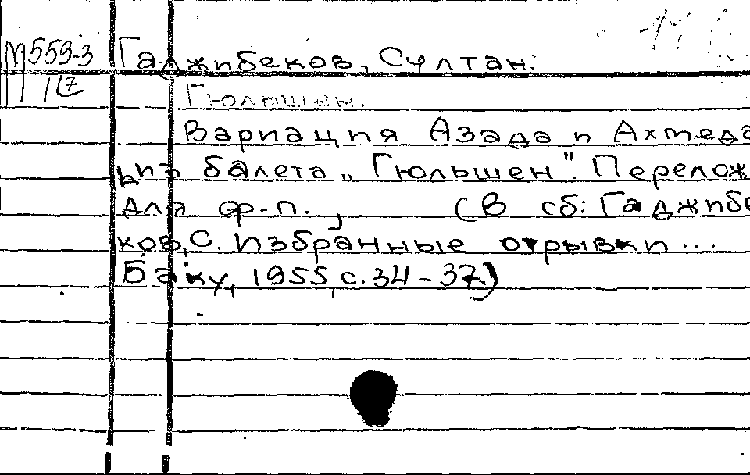 М559-3 Гаджибеков, Султан.
17 Гюльшен.
Вариация Азада и Ахмеда
из балета „Гюльшен". Перелож
для ф-п., (В сб: Гаджибе
ков, С. Избранные отрывки...
Баку, 1955, с. 34-37)